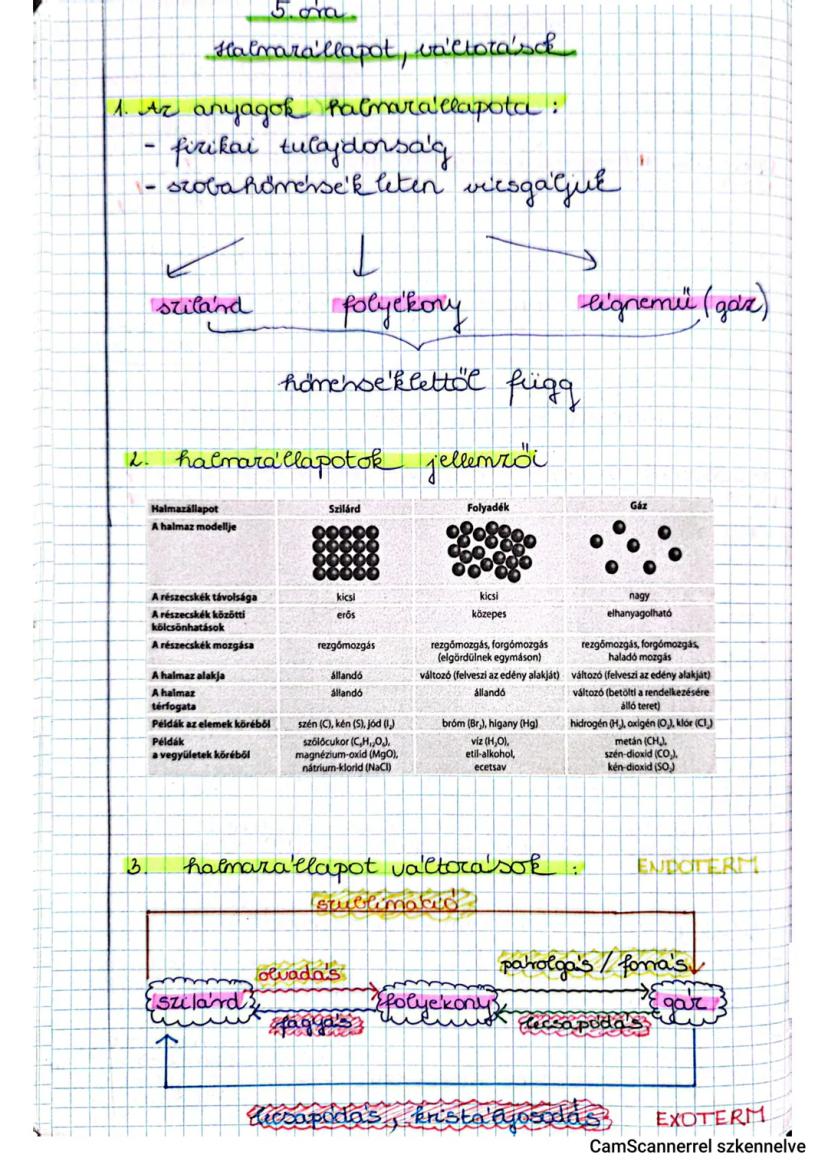 5. óra.
Halmazállapot, változások
1. Az anyagok halmazállapota :
- fizikai tulajdonság
- szobahőmérsékleten vizsgáljuk
szilárd folyékony légnemű (gáz)
hőmérséklettől függ
2. halmazállapotok jellemzői
Halmazállapot Szilárd Folyadék Gáz
A halmaz modellje
A részecskék távolsága kicsi kicsi nagy
A részecskék közötti kölcsönhatások erős közepes elhanyagolható
A részecskék mozgása rezgőmozgás rezgőmozgás, forgómozgás (elgördülnek egymáson) rezgőmozgás, forgómozgás, haladó mozgás
A halmaz alakja állandó változó (felveszi az edény alakját) változó (felveszi az edény alakját)
A halmaz térfogata állandó állandó változó (betölti a rendelkezésére álló teret)
Példák az elemek köréből szén (C), kén (S), jód (I₂) bróm (Br₂), higany (Hg) hidrogén (H₂), oxigén (O₂), klór (Cl₂)
Példák a vegyületek köréből szőlőcukor (C₆H₁₂O₆), magnézium-oxid (MgO), nátrium-klorid (NaCl) víz (H₂O), etil-alkohol, ecetsav metán (CH₄), szén-dioxid (CO₂), kén-dioxid (SO₂)
3. halmazállapot változások : ENDOTERM
szublimáció
olvadás párolgás / forrás
szilárd folyékony gáz
fagyás lecsapódás
lecsapódás, kristályosodás EXOTERM
CamScannerrel szkennelve